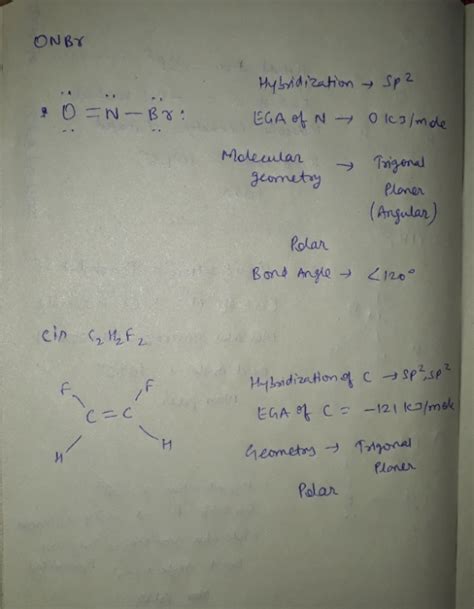 ONBr
Hybridization → Sp²
:Ö=N̈-B̈r:
EGA of N → 0 KJ/mole
Molecular geometry → Trigonal
Planer
(Angular)
Polar
Bond Angle → <120°
Cis C₂H₂F₂
F F
C=C
H H
Hybridization of C → Sp², Sp²
EGA of C = -121 KJ/mole
Geometry → Trigonal
Planer
Polar